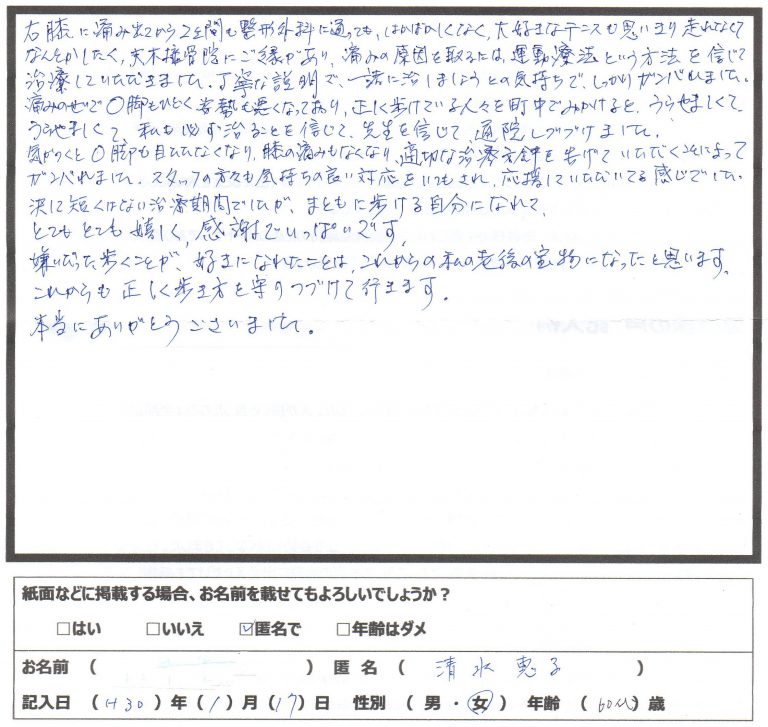 右膝に痛み出てから2年間も整形外科に通っても、はかばかしくなく、大好きなテニスも思いきり走れなくて
なんとかしたく、矢木接骨院にご縁があり、痛みの原因を取るには、運動療法という方法を信じて
治療していただきました。丁寧な説明で、一諸に治しましょうとの気持ちで、しっかりガンバれました。
痛みのせいで〇脚もひどく姿勢も悪くなっており、正しく歩けている人々を町中でみかけると、うらやましくて、
うらやましくて、私も必ず治ることを信じて、先生を信じて、通院しつづけました。
気がつくと〇脚も目立たなくなり、膝の痛みもなくなり、適切な治療方針を告げていただくことによって
ガンバれました。スタッフの方々も気持ちの良い対応をいつもされ、応援していただいてる感じでした。
決して短くはない治療期間でしたが、まともに歩ける自分になれて、
とてもとても嬉しく、感謝でいっぱいです。
嫌いだった歩くことが、好きになれたことは、これからの私の老後の宝物になったと思います。
これからも正しく歩き方を守りつづけて行きます。
本当にありがとうございました。
紙面などに掲載する場合、お名前を載せてもよろしいでしょうか?
□はい □いいえ ☑匿名で □年齢はダメ
お名前 ( ) 匿名 ( 清水恵子 )
記入日 (H30) 年 (1) 月 (17) 日 性別 (男・女) 年齢 (60代) 歳